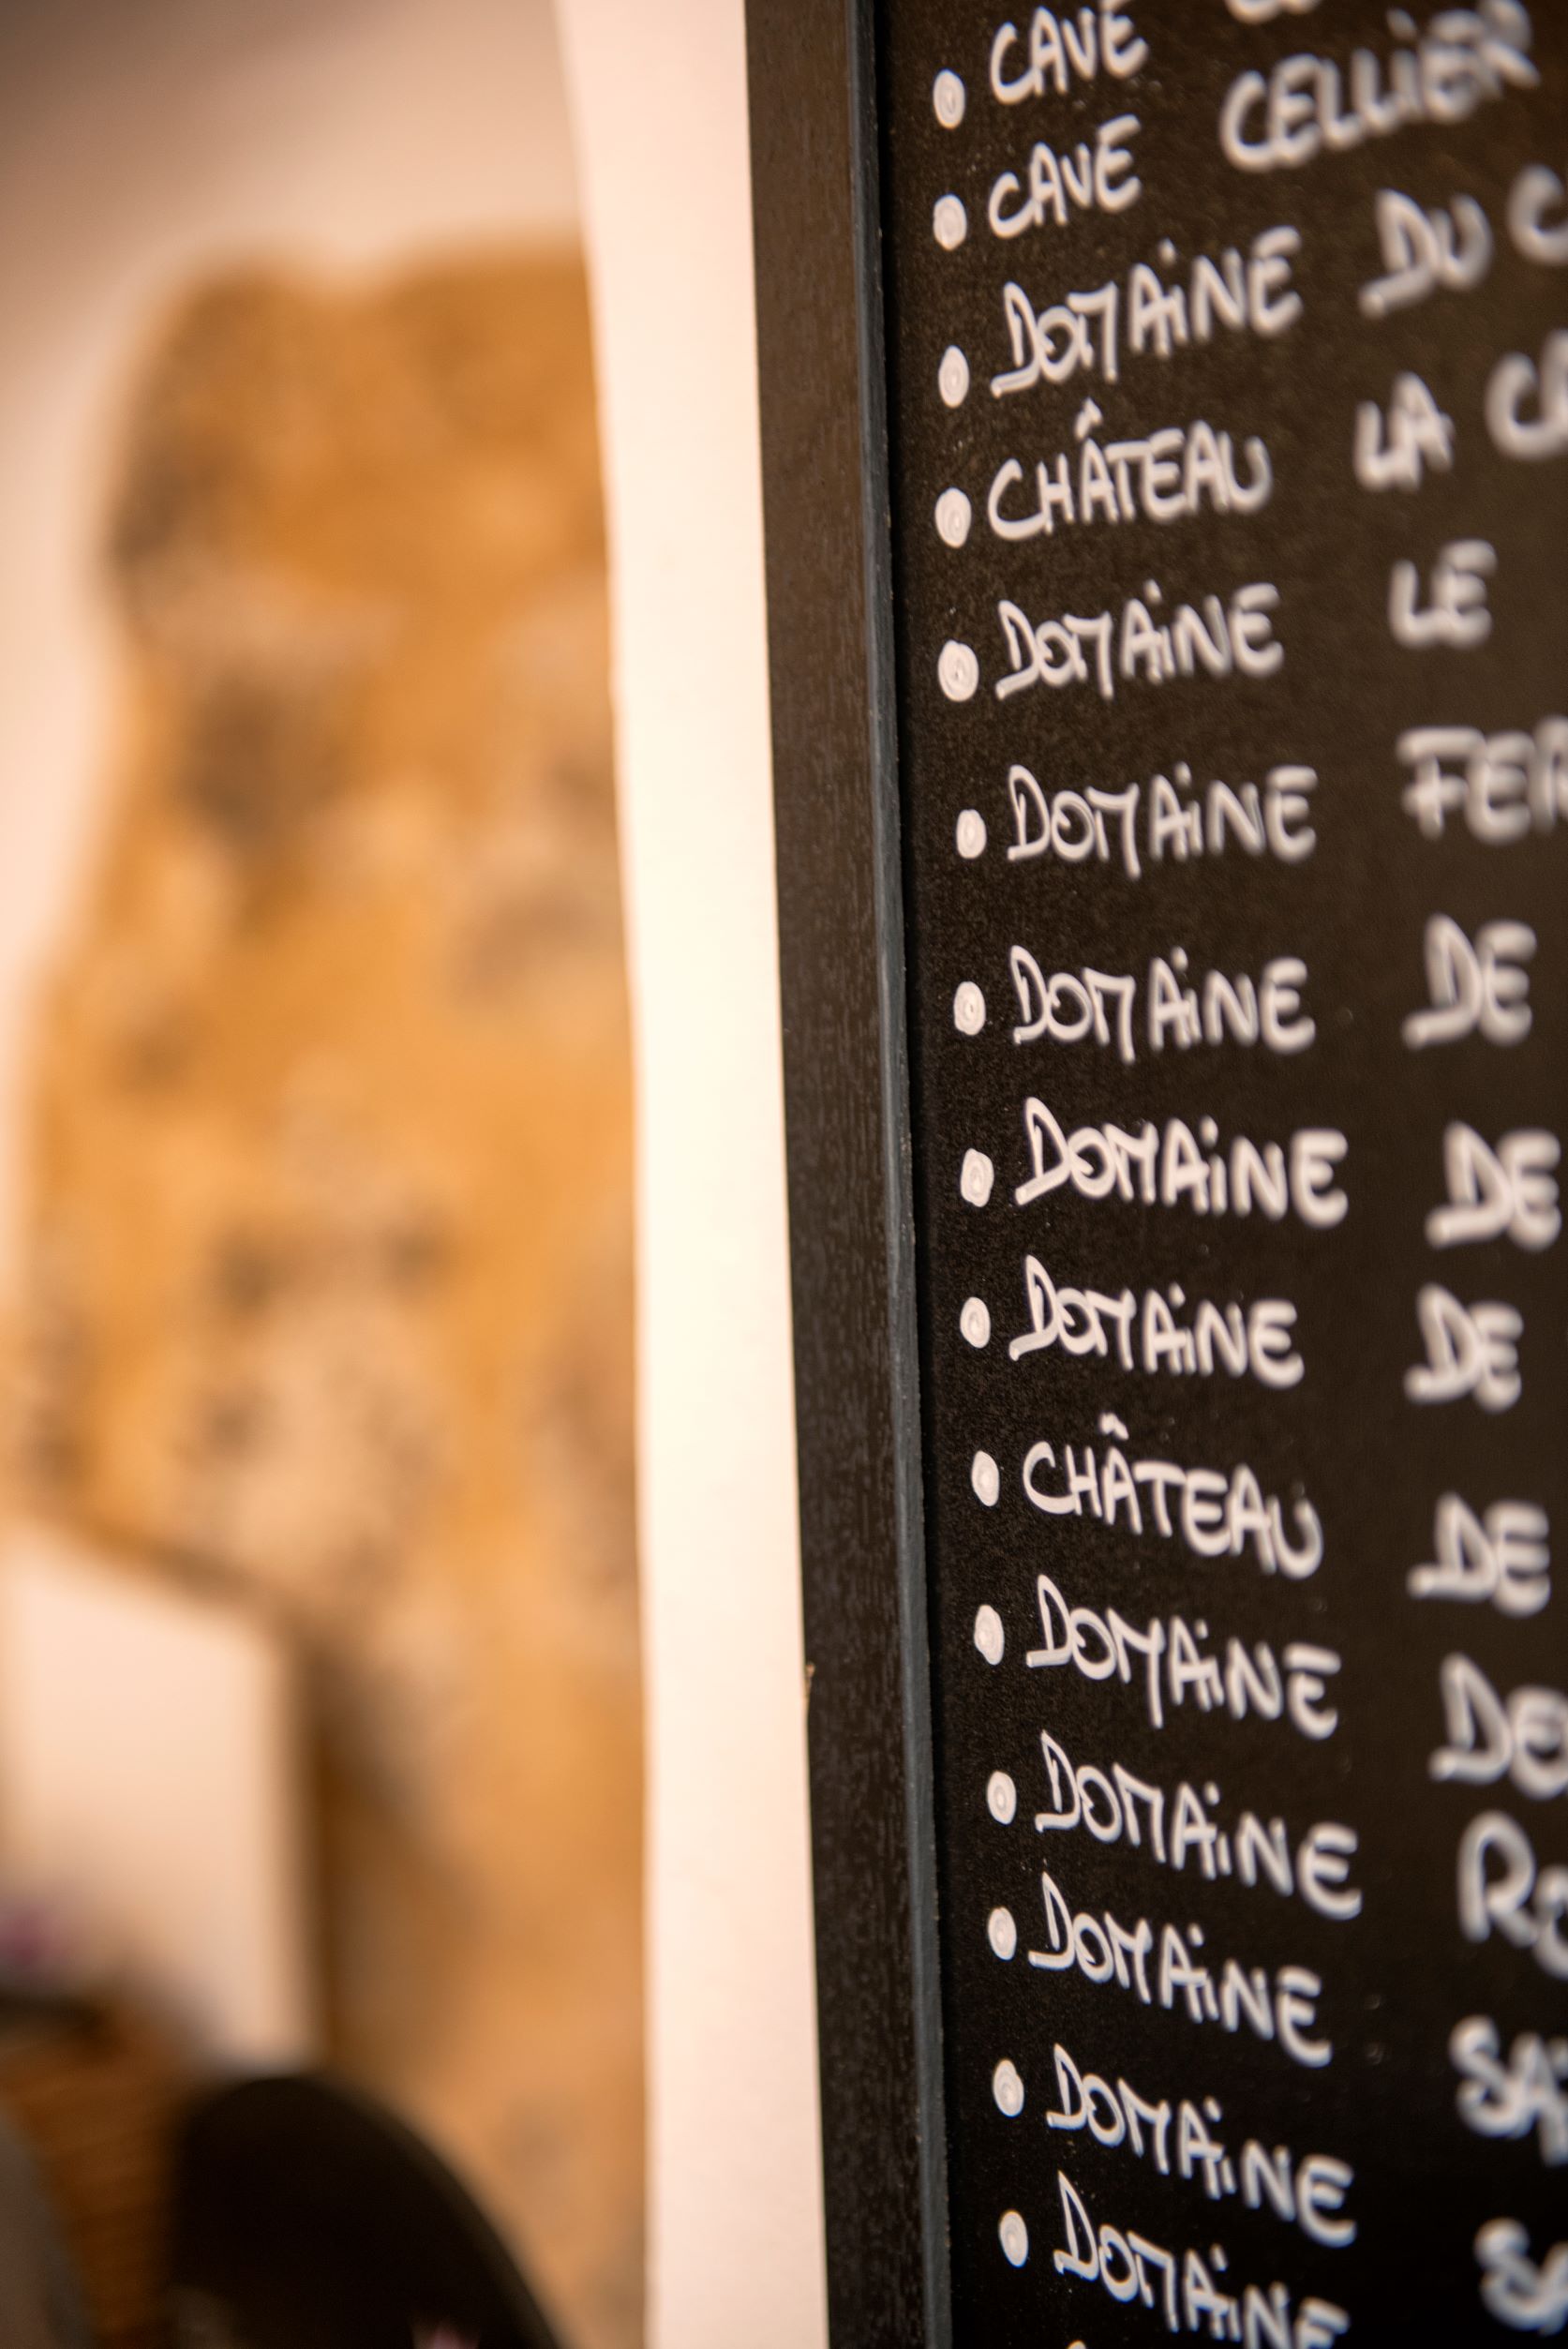 • CAVE
• CAVE CELLIER
• DOMAINE DU
• CHÂTEAU LA
• DOMAINE LE
• DOMAINE FER
• DOMAINE DE
• DOMAINE DE
• DOMAINE DE
• CHÂTEAU DE
• DOMAINE DE
• DOMAINE
• DOMAINE
• DOMAINE
• DOMAINE